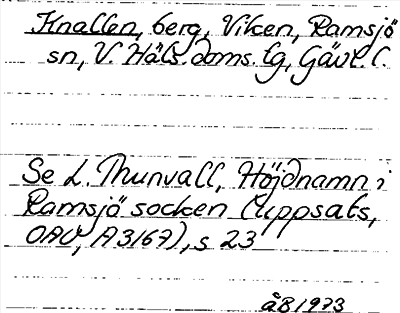 Knallen, berg, Viken, Ramsjö
sn, V. Häls. doms. lg, Gävl. l.
Se L. Thunvall, Höjdnamn i
Ramsjö socken (Uppsats,
OAU, A3167), s 23
åB 1973